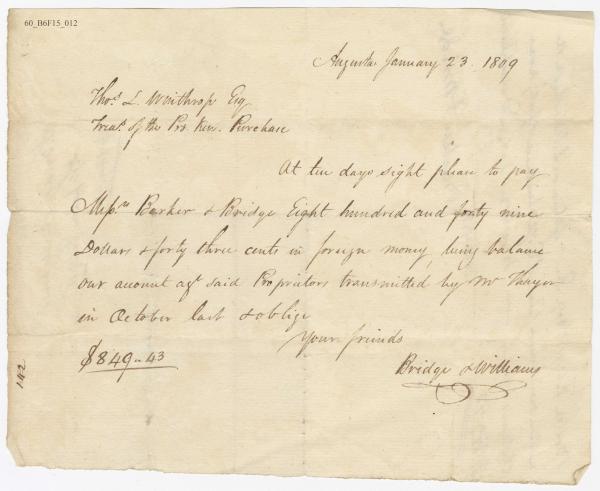 60_B6F15_012
Augusta January 23. 1809
Thos. L. Winthrop Esq
Treasr. of the Pro. Ken. Purchase
At ten days sight please to pay
Messrs. Barker & Bridge Eight hundred and forty nine
Dollars & forty three cents in foreign money, being balance
our account agt said Proprietors transmitted by Mr Thayer
in October last & oblige
Your friends
Bridge & Williams
$849..43
142